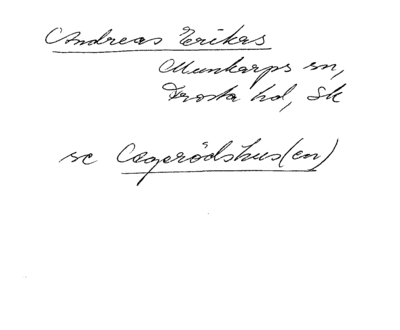 Andreas Erikas
Munkarps sn,
Frosta hd, Sk
se Ageródshus(en)